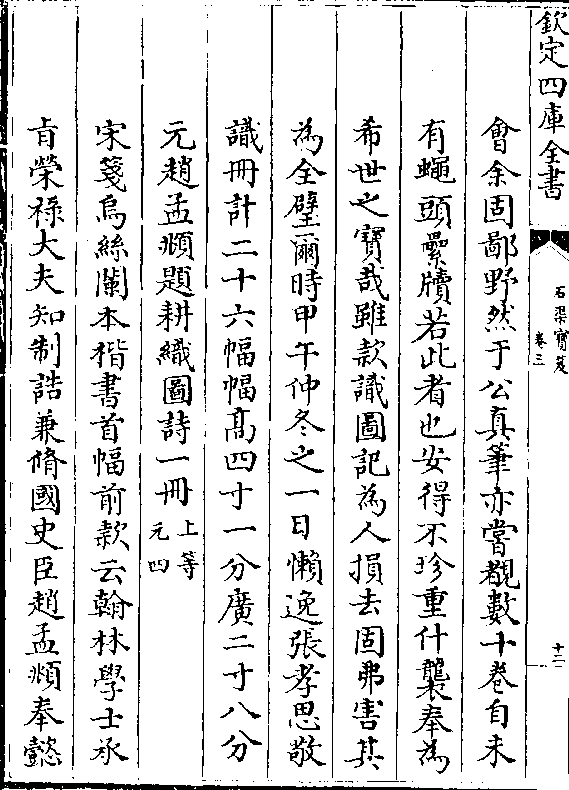 欽定四庫全書
石渠寶笈
卷三
十二
會余固鄙野然于公真筆亦嘗覩數十卷自未
有蠅頭纍牘若此者也安得不珍重什襲奉為
希世之寶哉雖款識圖記為人損去固弗害其
為全璧爾時甲午仲冬之一日懶逸張孝思敬
識冊計二十六幅幅髙四寸一分廣二寸八分
元趙孟頫題耕織圖詩一冊上等
元四
宋箋烏絲闌本楷書首幅前款云翰林學士承
㫖榮禄大夫知制誥兼脩國史臣趙孟頫奉懿